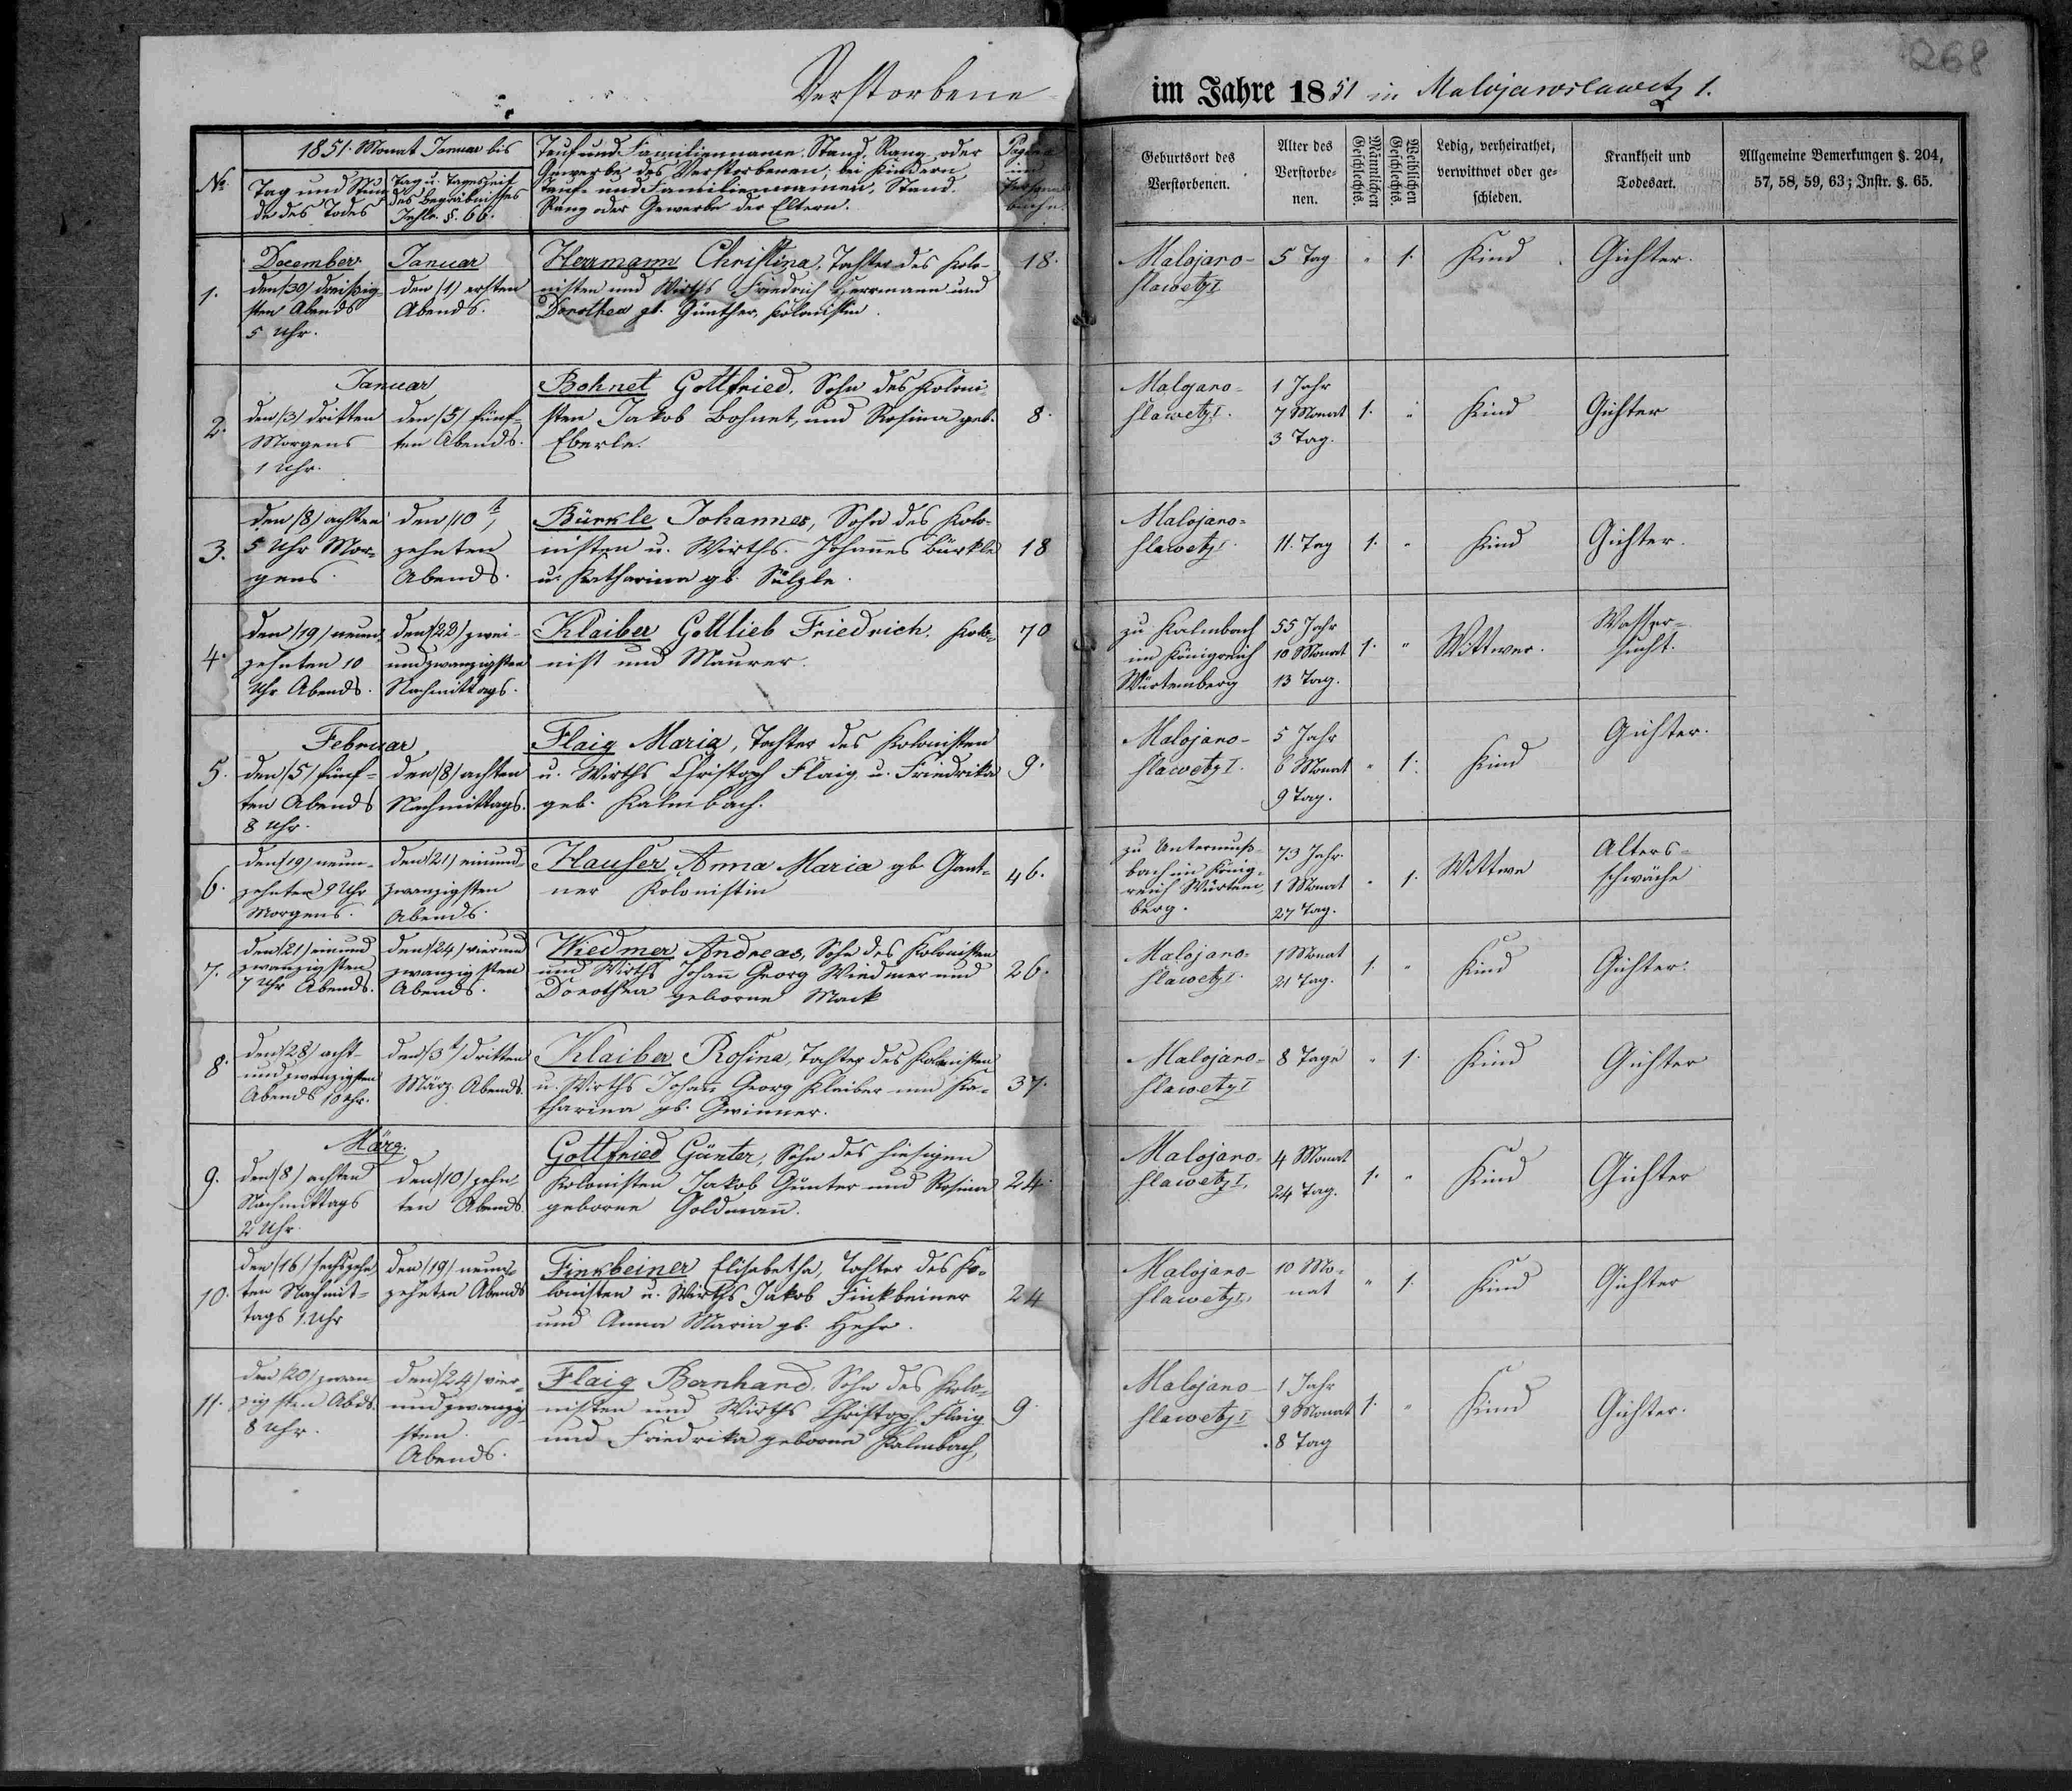 268
Verstorbene im Jahre 1851 in Malojaroslawetz 1.
No.
1851. Monat Januar bis
Tag und Stun-
de des Todes
Tag u. Tageszeit
des Begräbnisses
Instr. §. 66.
Tauf und Familienname, Stand, Rang oder
Gewerbe des Verstorbenen; bei Kindern
Tauf- und Familiennamen, Stand,
Rang oder Gewerbe der Eltern.
Pagina
im
Personal-
buche.
Geburtsort des
Verstorbenen.
Alter des
Verstorbe-
nen.
Männlichen
Geschlechts.
Weiblichen
Geschlechts.
Ledig, verheirathet,
verwittwet oder ge-
schieden.
Krankheit und
Todesart.
Allgemeine Bemerkungen §. 204,
57, 58, 59, 63; Instr. §. 65.
1.
December
den (30) dreißig-
sten Abends
5 Uhr.
Januar
den (1) ersten
Abends.
Herrmann Christina, Tochter des Kolo-
nisten und Wirths Friedrich Herrmann und
Dorothea gb. Günther, Kolonisten.
18.
Malojaro-
slawetz I
5 Tag
" 1.
Kind
Gichter.
2.
Januar
den (3) dritten
Morgens
1 Uhr.
den (5) fünf-
ten Abends.
Bohnet Gottfried. Sohn des Koloni-
sten Jakob Bohnet, und Rosina geb.
Eberle.
8.
Malojaro-
slawetz I.
1 Jahr
7 Monat
3 Tag.
1. "
Kind
Gichter
3.
den (8) achten
5 Uhr Mor-
gens.
den (10t)
zehnten
Abends.
Bürkle Johannes, Sohn des Kolo-
nisten u. Wirths. Johannes Bürkle
u. Katharina gb. Sülzle.
18
Malojaro-
slawetz I.
11. Tag
1. "
Kind
Gichter.
4.
den (19) neun-
zehnten 10
Uhr Abends.
den (22) zwei-
undzwanzigsten
Nachmittags.
Klaiber Gottlieb Friedrich. Kolo-
nist und Maurer.
70
zu Kalmbach
im Königreich
Würtemberg
55 Jahr
10 Monat
13 Tag.
1. "
Wittwer.
Wasser-
sucht.
5.
Februar
den (5) fünf-
ten Abends
8 Uhr.
den (8) achten
Nachmittags.
Flaig Maria, Tochter des Kolonisten
u. Wirths Christoph Flaig u. Friedrika
geb. Kalmbach.
9.
Malojaro-
slawetz I.
5 Jahr
6 Monat
9 Tag.
" 1.
Kind
Gichter.
6.
den (19) neun-
zehnten 9 Uhr
Morgens.
den (21) einund-
zwanzigsten
Abends.
Hauser Anna Maria gb Gant-
ner Kolonistin
46.
zu Untermuß-
bach im König-
reich Würtem-
berg.
73 Jahr.
1 Monat
27 Tag.
" 1.
Wittwe
Alters-
schwäche
7.
den (21) einund
zwanzigsten
7 Uhr Abends.
den (24) vierund
zwanzigsten
Abends.
Wiedmer Andreas, Sohn des Kolonisten
und Wirths Johann Georg Wiedmer und
Dorothea geborne Mack
26.
Malojaro-
slawetz I.
1 Monat
21 Tag.
1. "
Kind
Gichter.
8.
den (28) acht-
undzwanzigsten
Abends 10 Uhr.
den (3t) dritten
März. Abends.
Klaiber Rosina, Tochter des Kolonisten
u. Wirths Johann Georg Klaiber und Ka-
tharina gb. Gwinner.
37.
Malojaro-
slawetz I
8 Tage
" 1.
Kind
Gichter
9.
März.
den (8) achten
Nachmittags
2 Uhr.
den (10) zehn-
ten Abends.
Gottfried Günter, Sohn des hiesigen
Kolonisten Jakob Günter und Rosina
geborne Goldmann.
24.
Malojaro-
slawetz I.
4 Monat
24 Tag.
1. "
Kind
Gichter
10.
den (16) sechszehn-
ten Nachmit-
tags 1 Uhr
den (19) neun-
zehnten Abends
Finkbeiner Elisabetha, Tochter des Ko-
lonisten u. Wirths Jakob Finkbeiner
und Anna Maria gb. Hehr.
24
Malojaro-
slawetz I.
10 Mo-
nat
" 1.
Kind
Gichter
11.
den (20) zwan-
zigsten Abds.
8 Uhr.
den (24) vier-
undzwanzig-
sten.
Abends.
Flaig Bernhard, Sohn des Kolo-
nisten und Wirths Christoph Flaig
und Friedrika geborne Kalmbach,
9
Malojaro-
slawetz I
1 Jahr
9 Monat
8 Tag
1. "
Kind
Gichter.